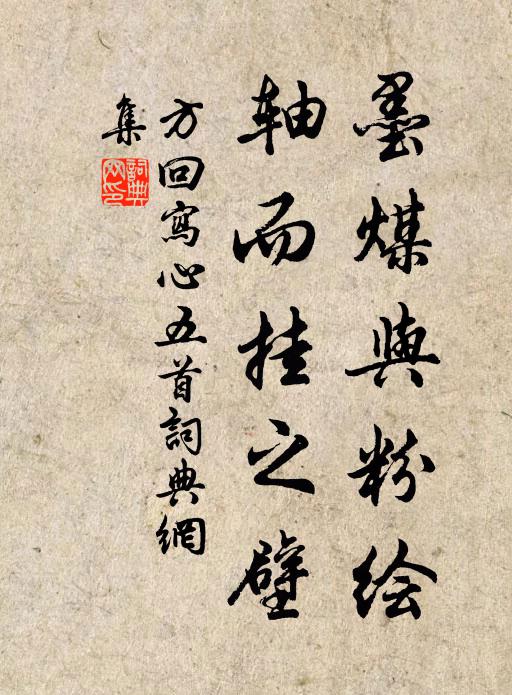 墨煤與粉绘
軸而挂之壁
方回寫心五首詞典網
集
詞典
网印